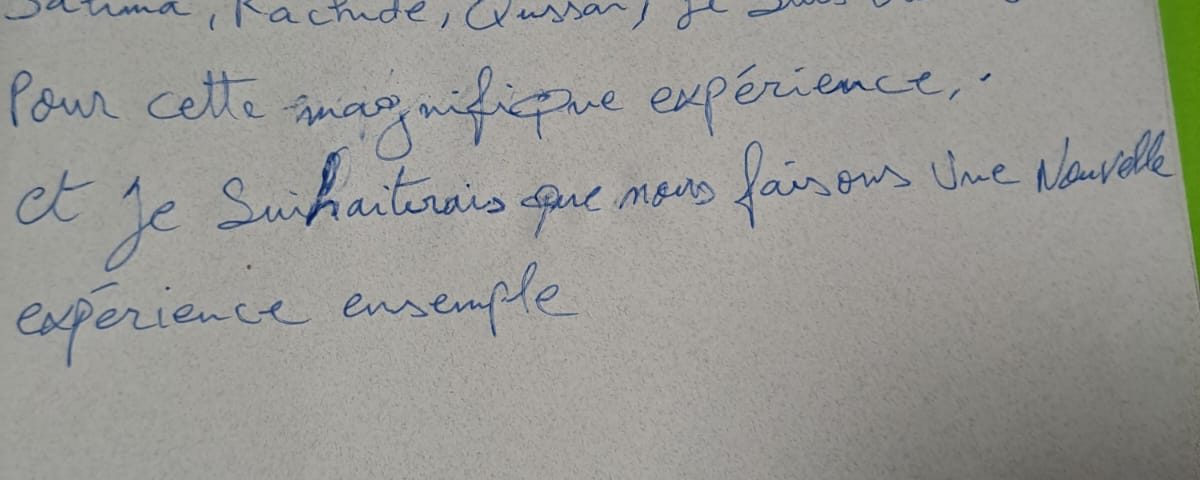 , Rachide, je suis
Pour cette magnifique expérience,.
et je Suihaiterais que nous faisons Une Nouvelle
expérience ensemple